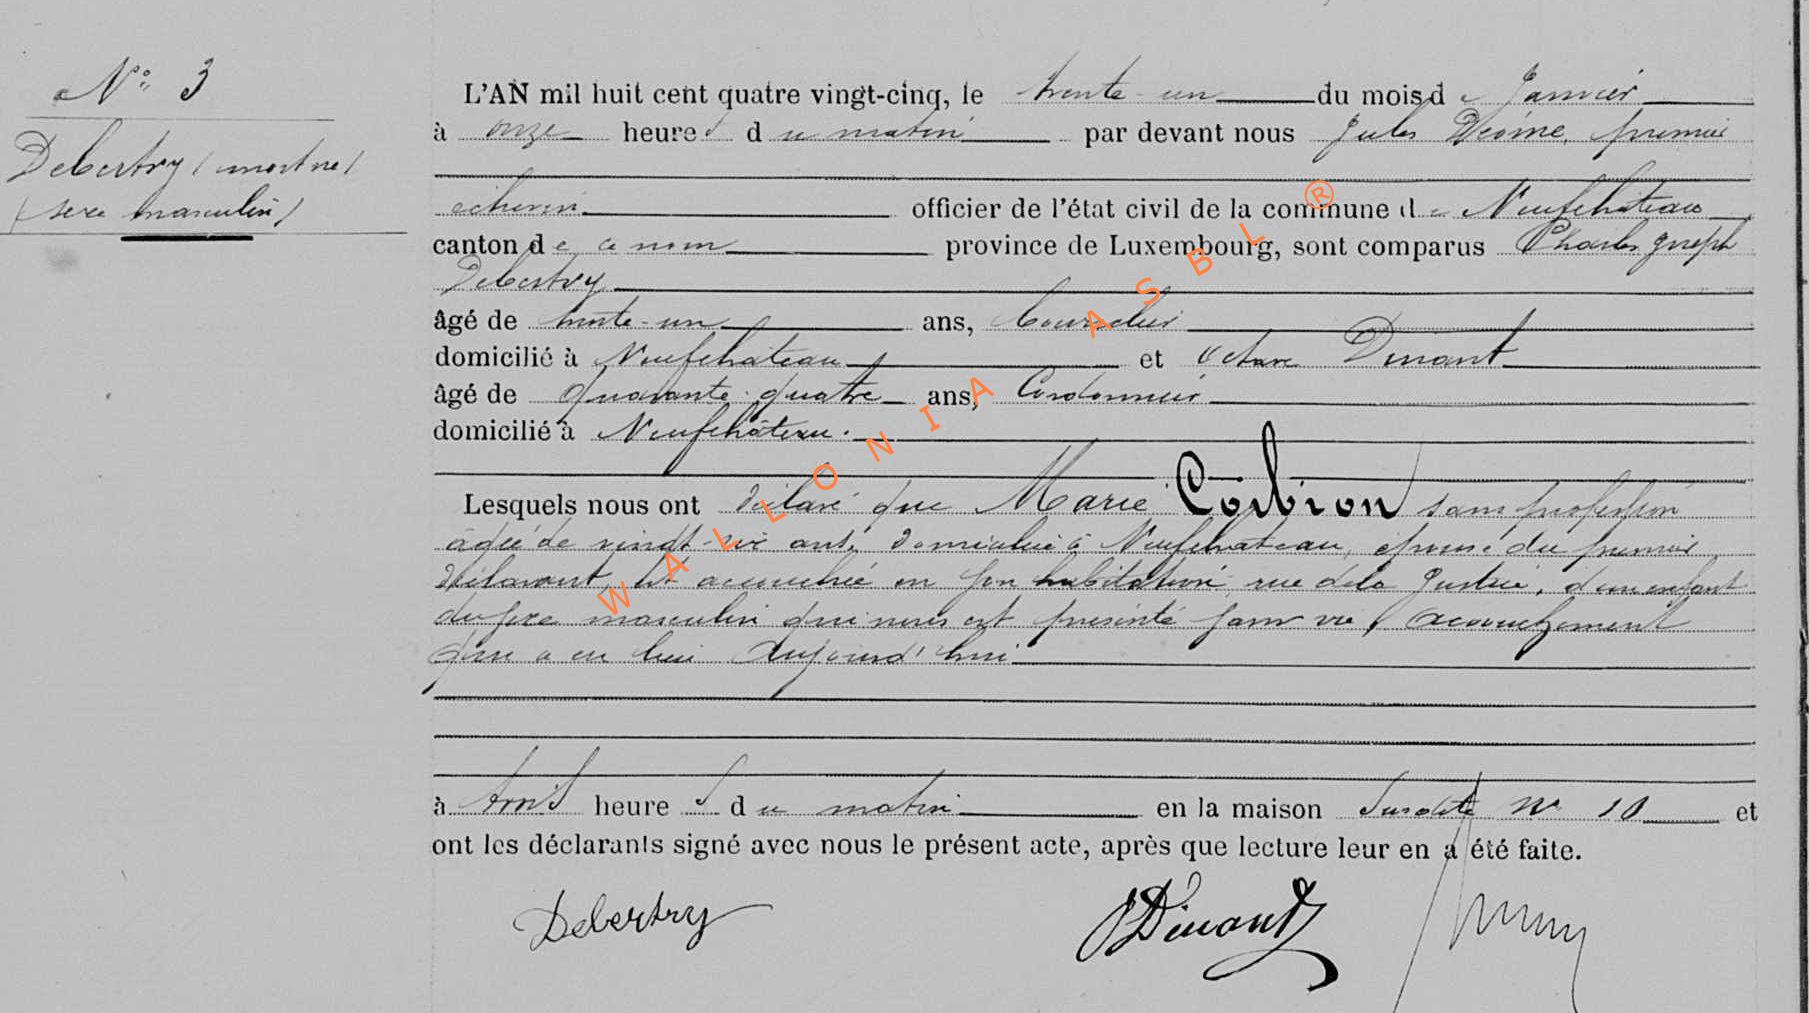 N° 3
Debertry (mort né)
(sexe masculin)
L'AN mil huit cent quatre vingt-cinq, le trente-un du mois de Janvier
à onze heures du matin par devant nous Jules premier
échevin officier de l'état civil de la commune de Neufchâteau
canton de ce nom province de Luxembourg, sont comparus Charles Joseph
Debertry
âgé de trente-un ans,
domicilié à Neufchâteau et Octave Dinant
âgé de quarante-quatre ans, Cordonnier
domicilié à Neufchâteau.
Lesquels nous ont déclaré que Marie Corbion sans profession
âgée de vingt-six ans, domiciliée à Neufchâteau, épouse du premier
déclarant, est accouchée en son habitation, rue de la Justice, d'un enfant
du sexe masculin qui nous est présenté sans vie, accouchement
qui a eu lieu aujourd'hui
à trois heures du matin en la maison susdite N° 10 et
ont les déclarants signé avec nous le présent acte, après que lecture leur en a été faite.
Debertry
Dinant
WALLONIA ASBL ®